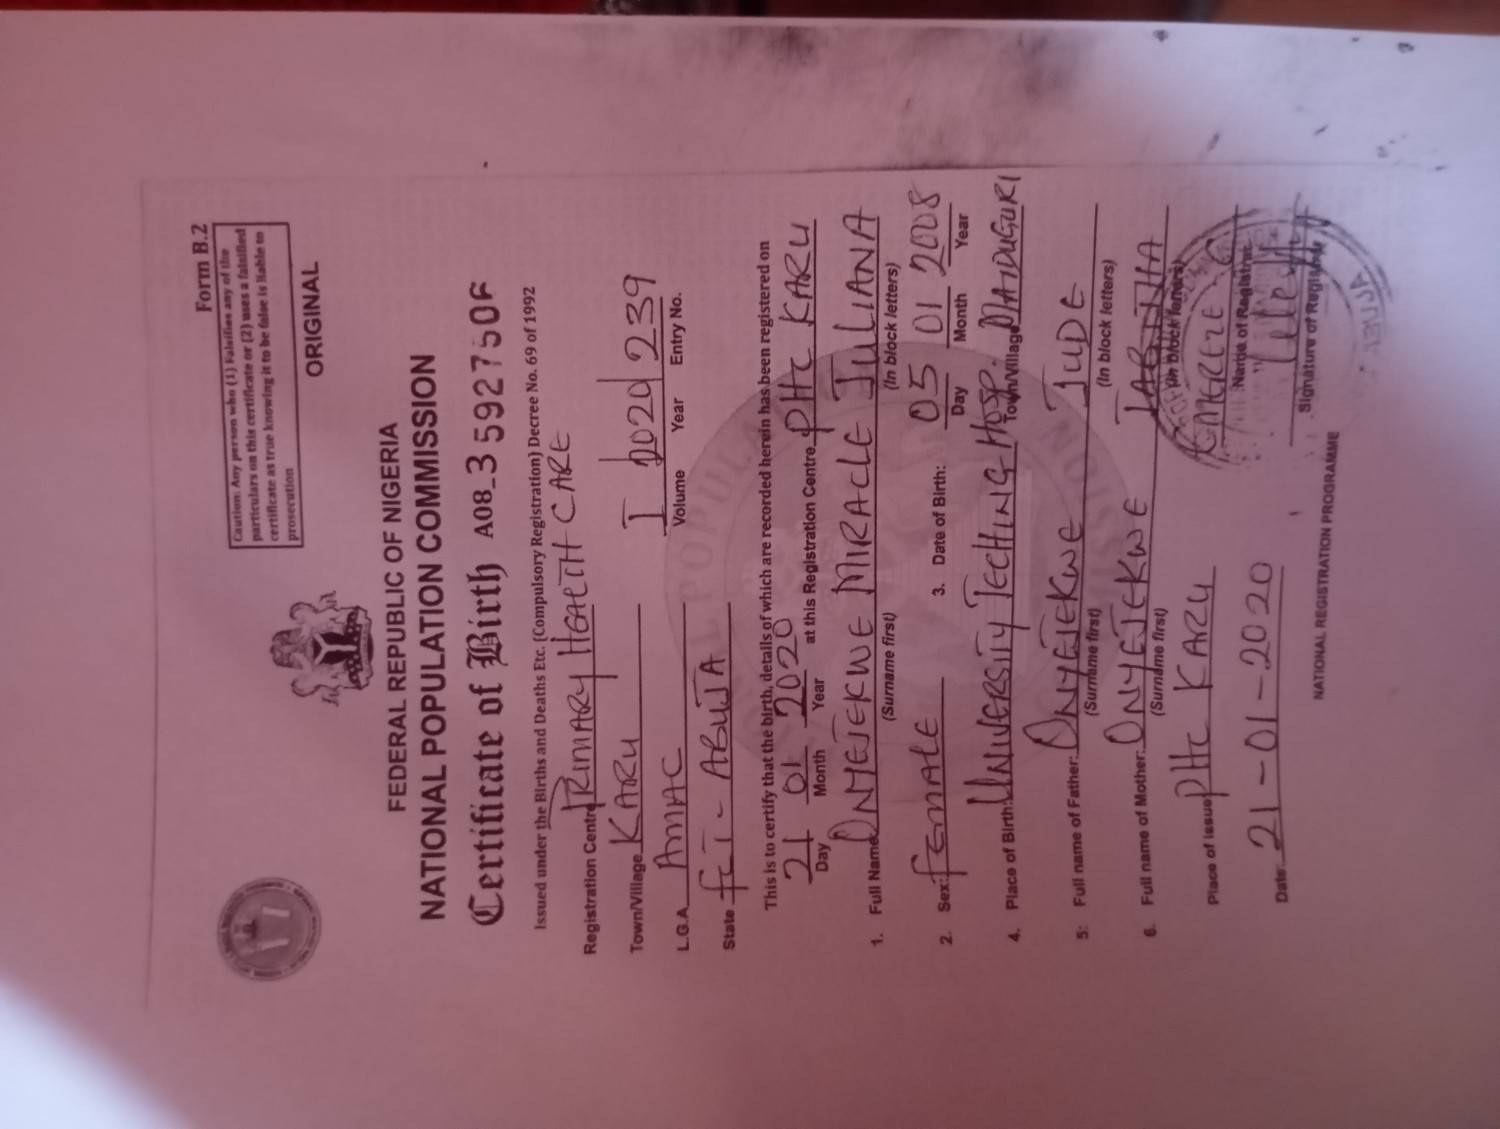 Form B.2
Caution: Any person who (1) Falsifies any of the
particulars on this certificate or (2) uses a falsified
certificate as true knowing it to be false is liable to
prosecution
ORIGINAL
FEDERAL REPUBLIC OF NIGERIA
NATIONAL POPULATION COMMISSION
Certificate of Birth A08_3592750F
Issued under the Births and Deaths Etc. (Compulsory Registration) Decree No. 69 of 1992
Registration Centre PRIMARY HEALTH CARE
Town/Village KARU I 2020 239
Volume Year Entry No.
L.G.A. AMAC
State FCT - ABUJA
This is to certify that the birth, details of which are recorded herein has been registered on
21 01 2020 at this Registration Centre PHC KARU
Day Month Year
1. Full Name ONYEJEKWE MIRACLE JULIANA
(Surname first) (In block letters)
2. Sex: FEMALE 3. Date of Birth: 05 01 2008
Day Month Year
4. Place of Birth: UNIVERSITY TECHING HOSP. Town/Village MAIDUGURI
5: Full name of Father: ONYEJEKWE JUDE
(Surname first) (In block letters)
6. Full name of Mother: ONYEJEKWE
(Surname first) (In block letters)
Place of issue PHC KARU
Name of Registrar
Date: 21-01-2020
Signature of Registrar
NATIONAL REGISTRATION PROGRAMME
ABUJA